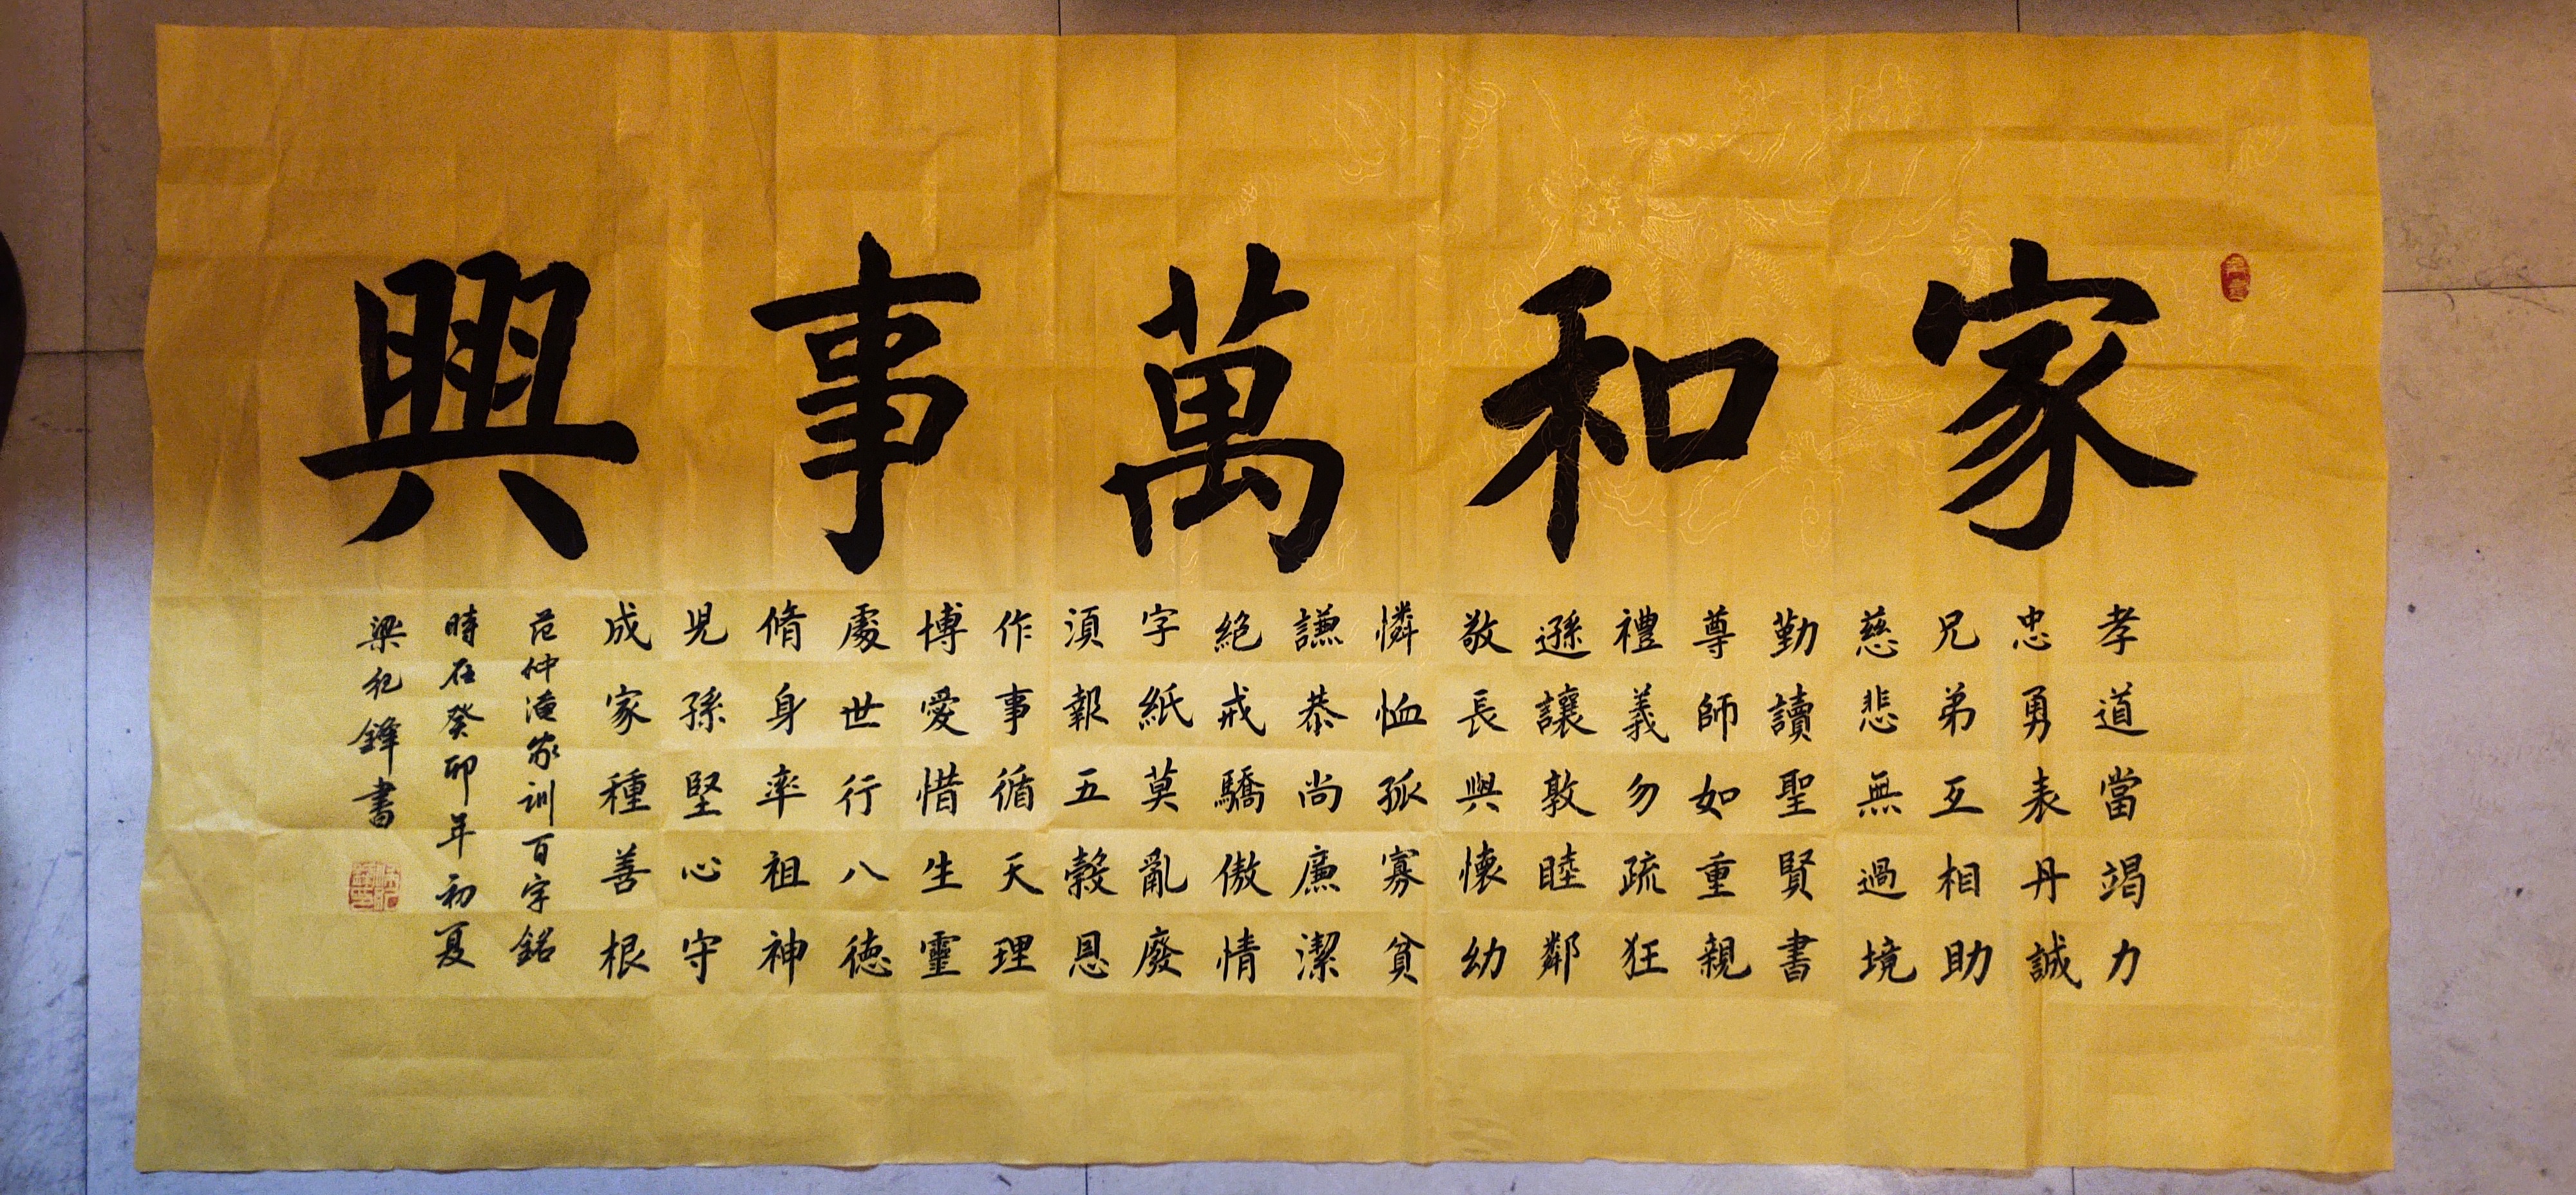 家和萬事興
孝道當竭力
忠勇表丹誠
兄弟互相助
慈悲無過境
勤讀聖賢書
尊師如重親
禮義勿疏狂
遜讓敦睦鄰
敬長與懷幼
憐恤孤寡貧
謙恭尚廉潔
絕戒驕傲情
字紙莫亂廢
須報五穀恩
作事循天理
博愛惜生靈
處世行八德
脩身率祖神
児孫堅心守
成家種善根
范仲淹家训百字銘
時在癸卯年初夏
梁紀鋒書